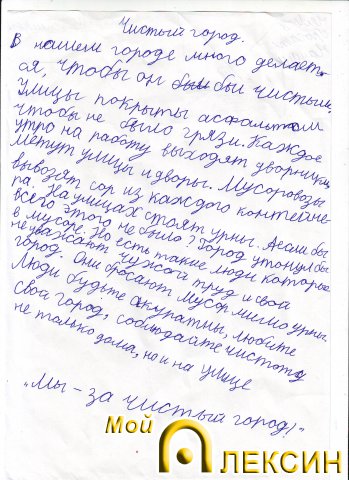 Чистый город.
В нашем городе много делает-
ся, чтобы он был бы чистым.
Улицы покрыты асфальтом
чтобы не было грязи. Каждое
утро на работу выходят дворники
метут улицы и дворы. Мусоровозы
вывозят сор из каждого контейне-
ра. На улицах стоят урны. А если бы
всего этого не было? Город утонул бы
в мусоре. Но есть такие люди которые
не уважают чужой труд и свой
город. Они бросают мусор мимо урны.
Люди будьте аккуратны, любите
свой город, соблюдайте чистоту
не только дома, но и на улице
„Мы – за чистый город!"
Мой
Алексин